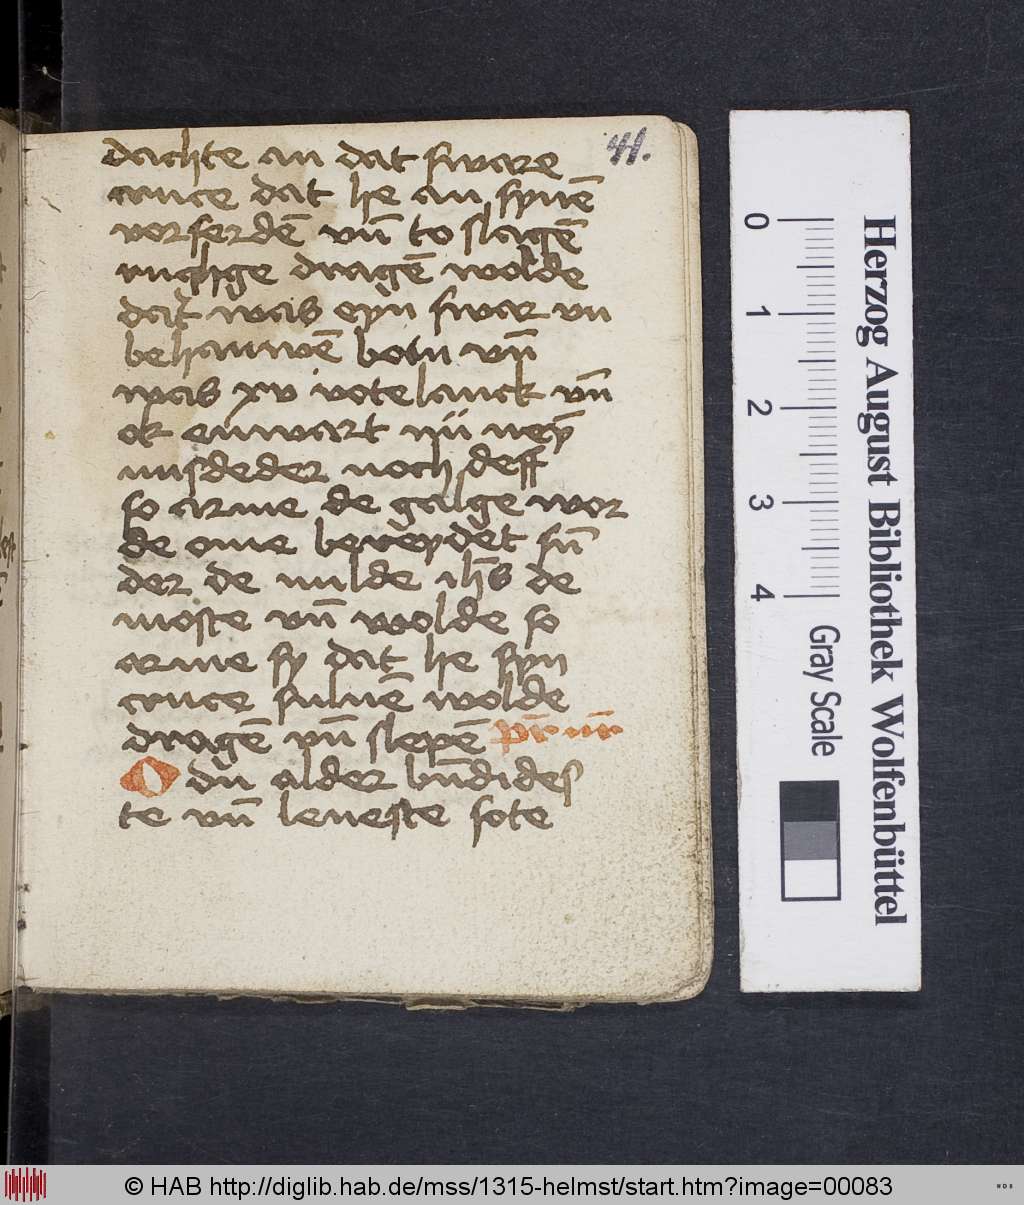 41.
dachte an dat sware
cruce dat he an synē
vorserdē vn̄ to slagē
rughge dragē wolde
dat was eyn swar vn
behauwē bom vn̄
was xv votelanck vn̄
ok enwart nū ney
misdeder noch deff
so arme de galge wor
de ome bereydet sū
der de milde ihs̄ de
moste vn̄ wolde so
arme sy dat he syn
cruce suluē wolde
dragē vn̄ slepē pr̄ nr̄
O du alder bn̄dides
te vn̄ leueste sote
Herzog August Bibliothek Wolfenbüttel
0 1 2 3 4
Gray Scale
© HAB http://diglib.hab.de/mss/1315-helmst/start.htm?image=00083